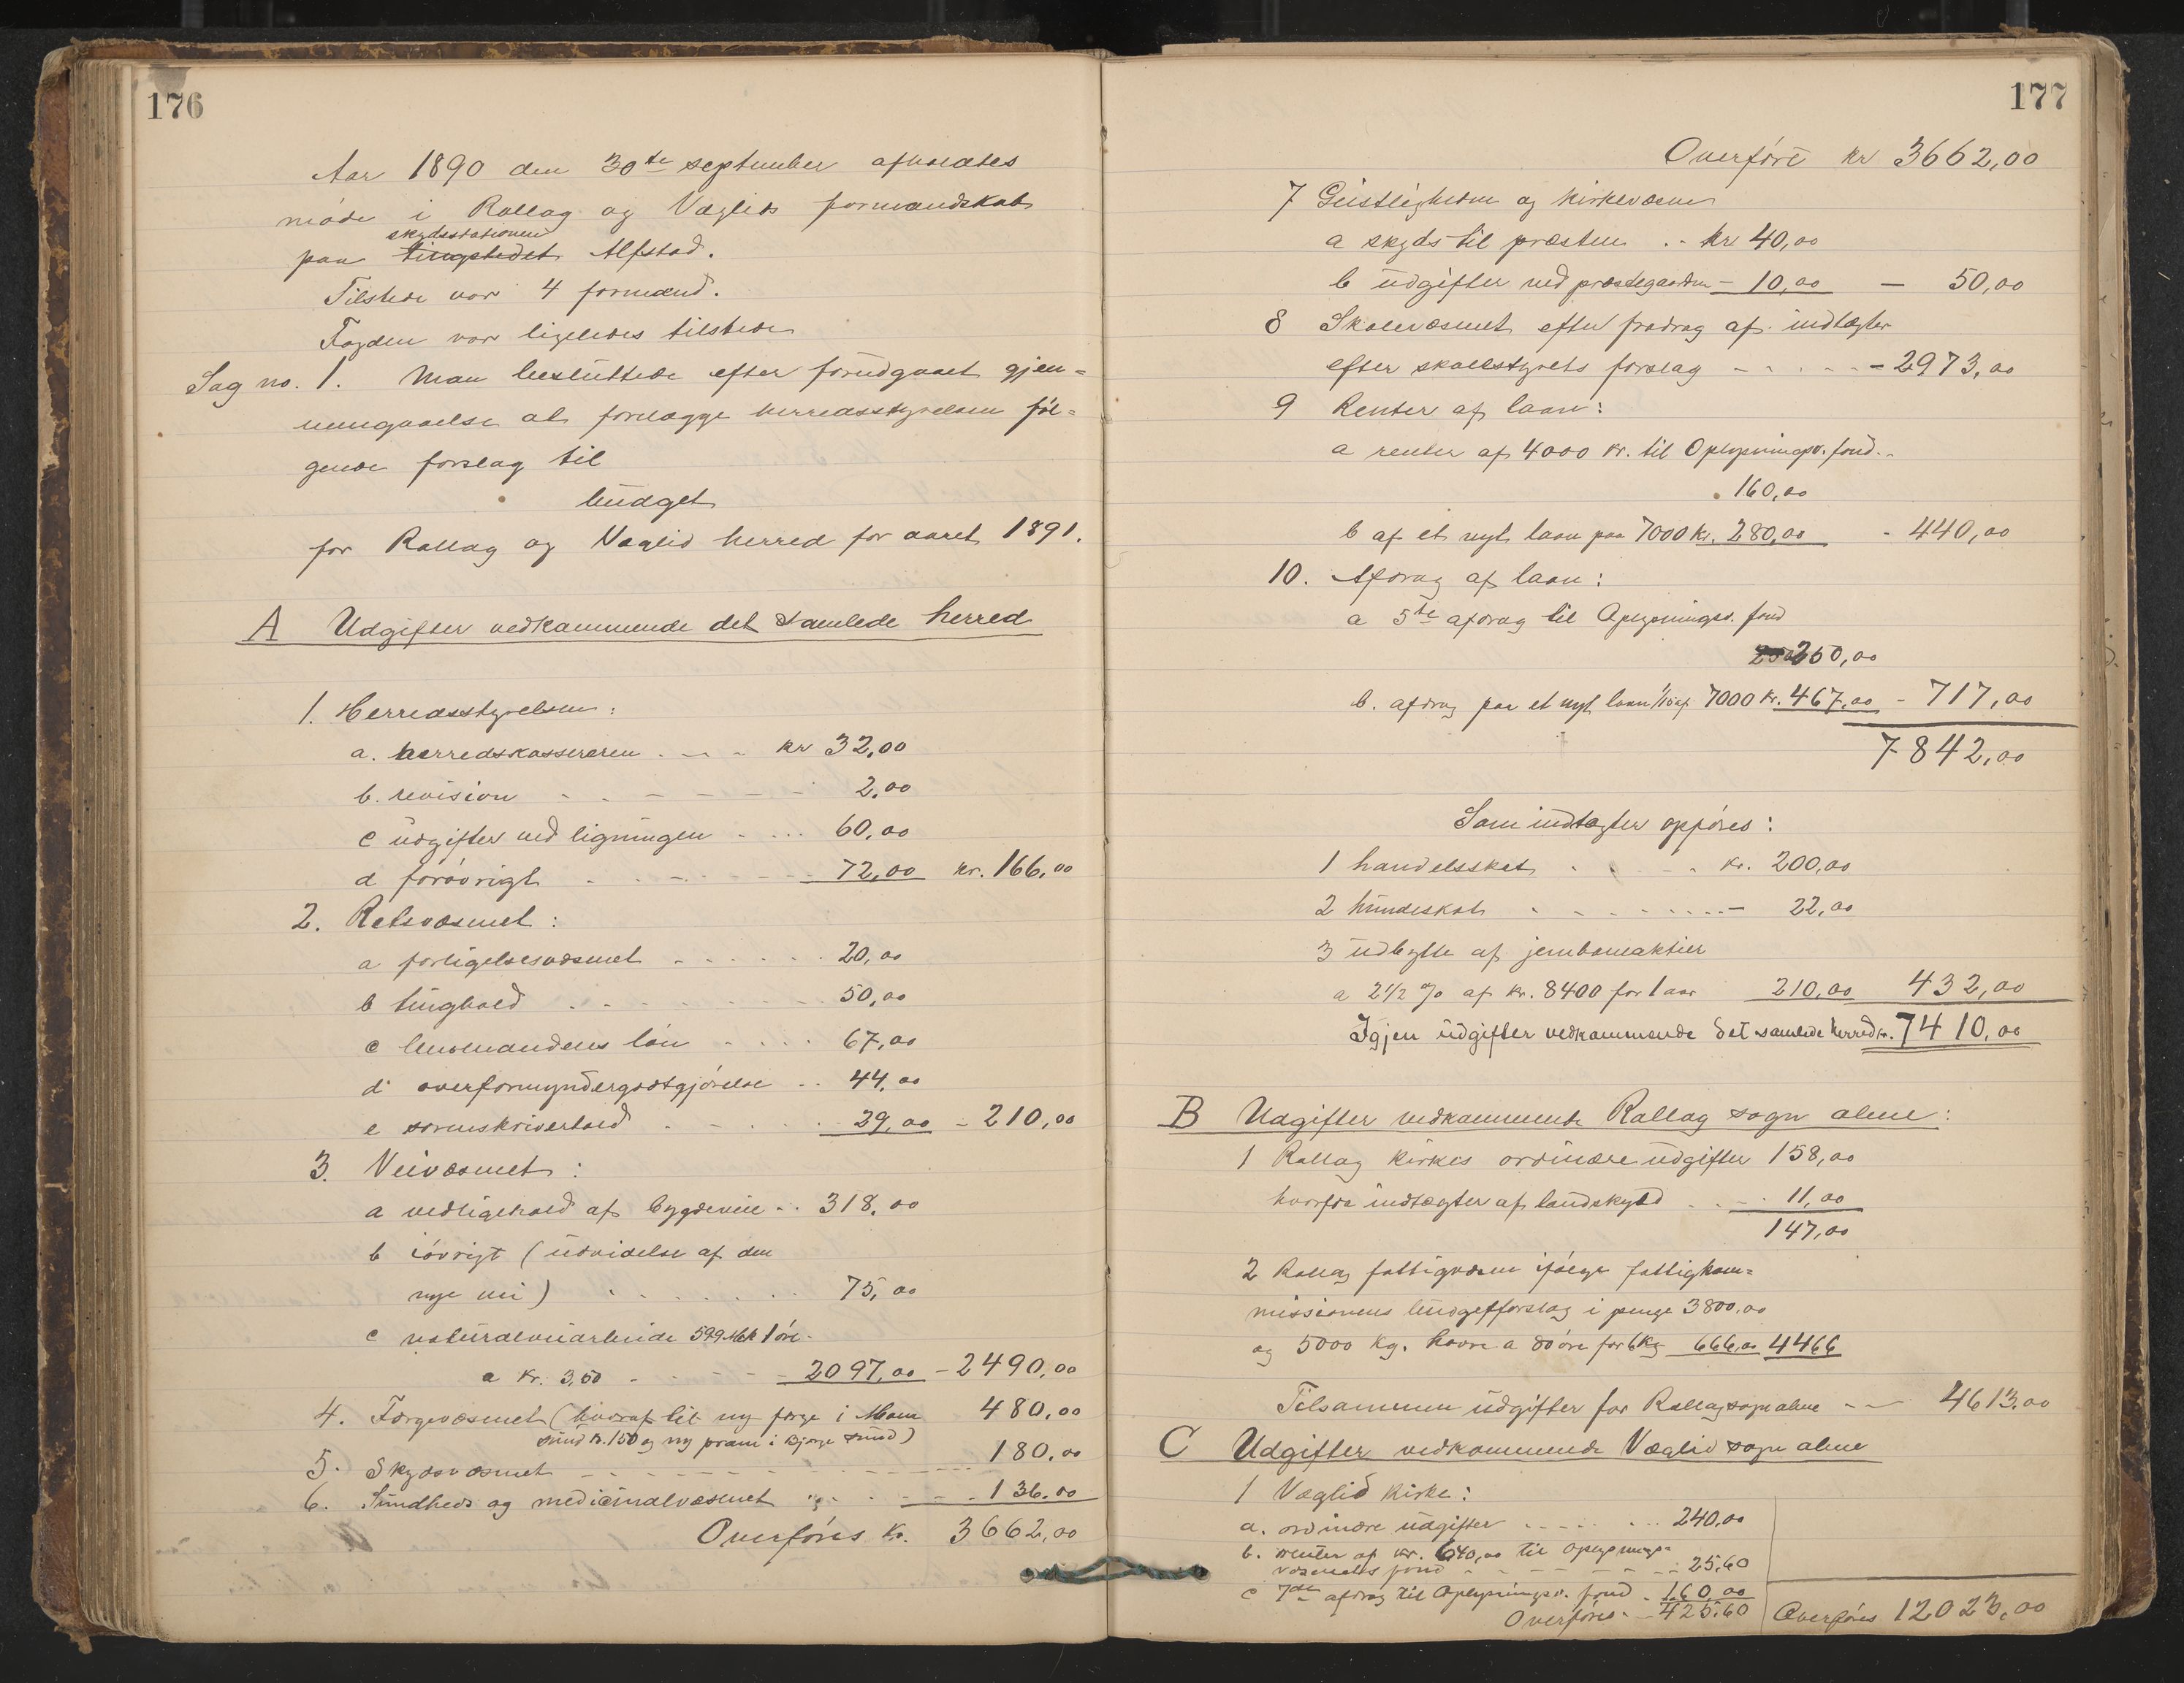 176
Aar 1890 den 30te september afholdtes
møde i Rollag og Væglids formandskab
skydsstationen
paa tingstedet Alfstad.
Tilstede var 4 formænd.
Fogden var ligeledes tilstede
Sag no. 1. Man besluttede efter forudgaaet gjen=
nemgaaelse at forelægge herredsstyrelsen føl=
gende forslag til
budget
for Rollag og Væglid herred for aaret 1891.
A Udgifter vedkommende det samlede herred
1. Herredsstyrelsen:
a. herredskassereren . - - kr 32,00
b. revision - - - - - - 2,00
c udgifter ved ligningen - ... 60,00
d forøvrigt - - - - - 72,00 kr. 166,00
2. Retsvæsenet:
a forligelsesvæsenet - - - - - 20,00
b tinghold - - - - - 50,00
c lensmandens løn - - - - 67,00
d overformyndergodtgjørelse .. 44,00
e sorenskriverhold - - - - 29,00 - 210,00
3. Veivæsenet:
a vedligehold af bygdeveie .. 318,00
b iøvrigt (udvidelse af den
nye vei) - - - - - 75,00
c naturalveiarbeide 599 Mk 1 øre -
a kr. 3,50 - - - - - 2097,00 - 2490,00
4. Færgevæsenet (hvoraf til ny færge i Mom 480,00
sund kr. 150 og ny pram i Bjørge sund)
5. Skydsvæsenet - - - - - 180,00
6. Sundheds og medicinalvæsenet - - - 136,00
Overføres Kr. 3662,00
177
Overført kr 3662,00
7 Geistligheden og kirkevæsen
a skyds til præsten .. kr 40,00
b udgifter ved præstegaarden - 10,00 - 50,00
8 Skolevæsenet efter fradrag af indtægter
efter skolestyrets forslag - - - - - 2973,00
9 Renter af laan:
a renter af 4000 kr. til Oplysningsv. fond..
160,00
b af et nyt laan paa 7000 kr. 280,00 - 440,00
10. Afdrag af laan:
a 5te afdrag til Oplysningsv. fond
250,00
b. afdrag paa et nyt laan 1/15 af 7000 kr. 467,00 - 717,00
7842,00
Som indtægter opføres:
1 handelsskat - - - - kr. 200,00
2 hundeskat - - - - - 22,00
3 udbytte af jernbaneaktier
a 2 1/2 % af kr. 8400 for 1 aar 210,00 432,00
Igjen udgifter vedkommende det samlede herred kr. 7410,00
B Udgifter vedkommende Rollag sogn alene:
1 Rollag kirkes ordinære udgifter 158,00
hvorfra indtægter af landskyld - - 11,00
147,00
2 Rollag fattigvæsen ifølge fattigkom=
missionens budgetforslag i penge 3800,00
og 5000 kg. havre a 80 øre for 6 kg 666,00 4466
Tilsammen udgifter for Rollag sogn alene - - 4613,00
C Udgifter vedkommende Væglid sogn alene
1 Væglid kirke:
a. ordinære udgifter - - - - - 240,00
b. renter af kr. 640,00 til oplysnings=
væsenets fond - - - - - 25,60
c 7de afdrag til Oplysningsv. fond - 160,00
Overføres - 425,60
Overføres 12023,00